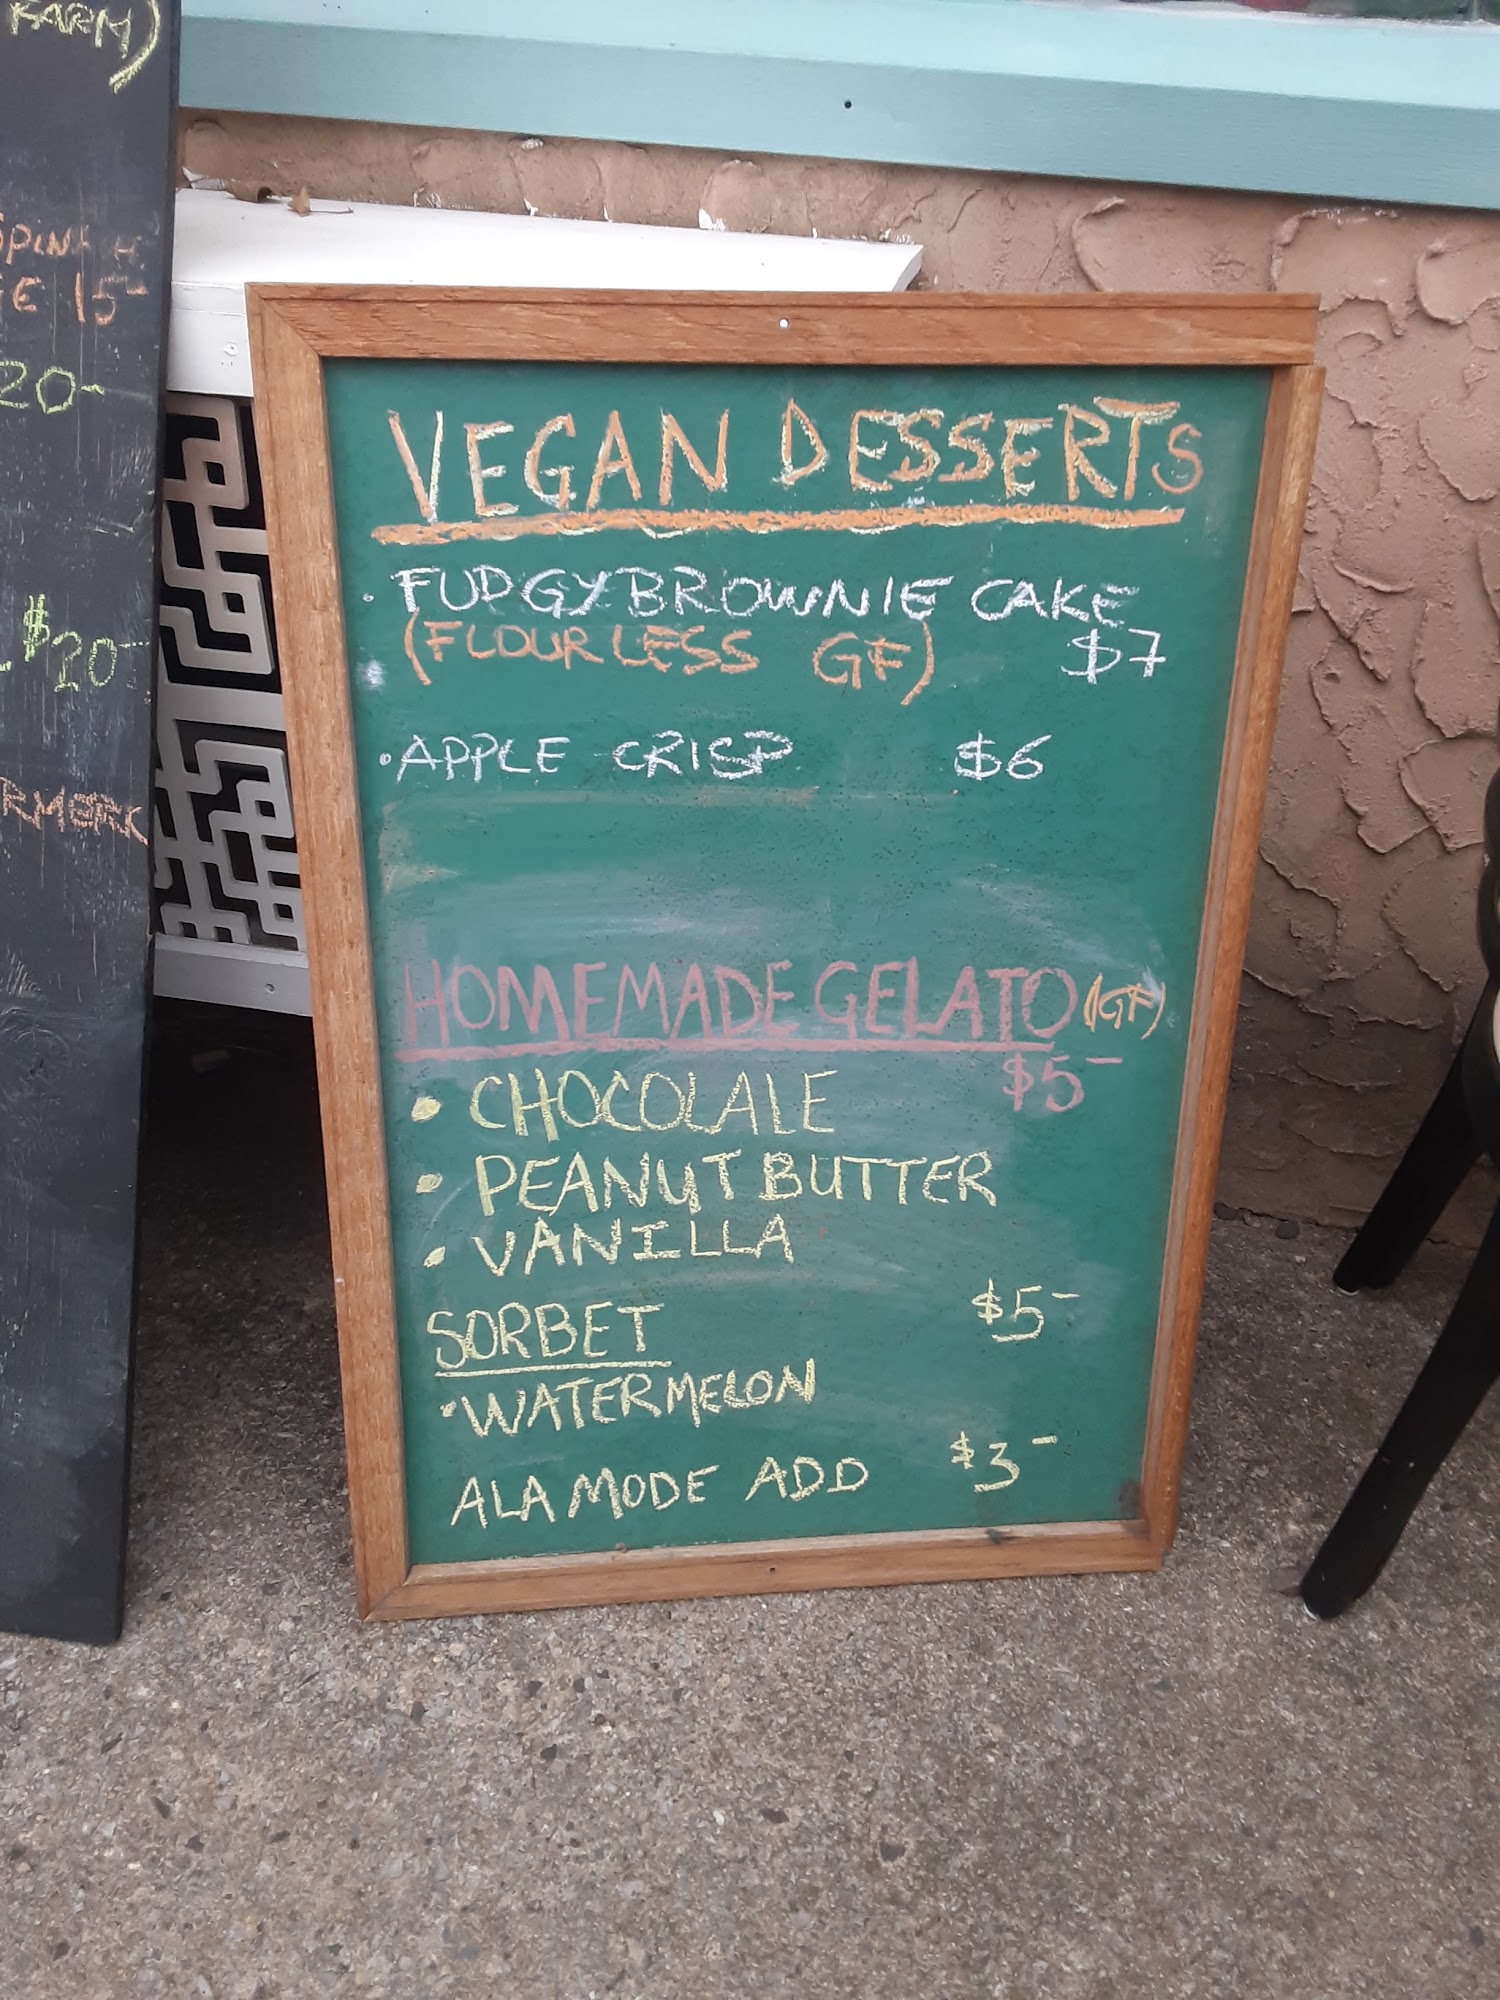 FARM)
15-
20-
$20-
VEGAN DESSERTS
• FUDGY BROWNIE CAKE
(FLOURLESS GF) $7
• APPLE CRISP $6
HOMEMADE GELATO (GF)
$5-
• CHOCOLALE
• PEANUT BUTTER
• VANILLA
SORBET $5-
• WATERMELON
ALA MODE ADD $3-